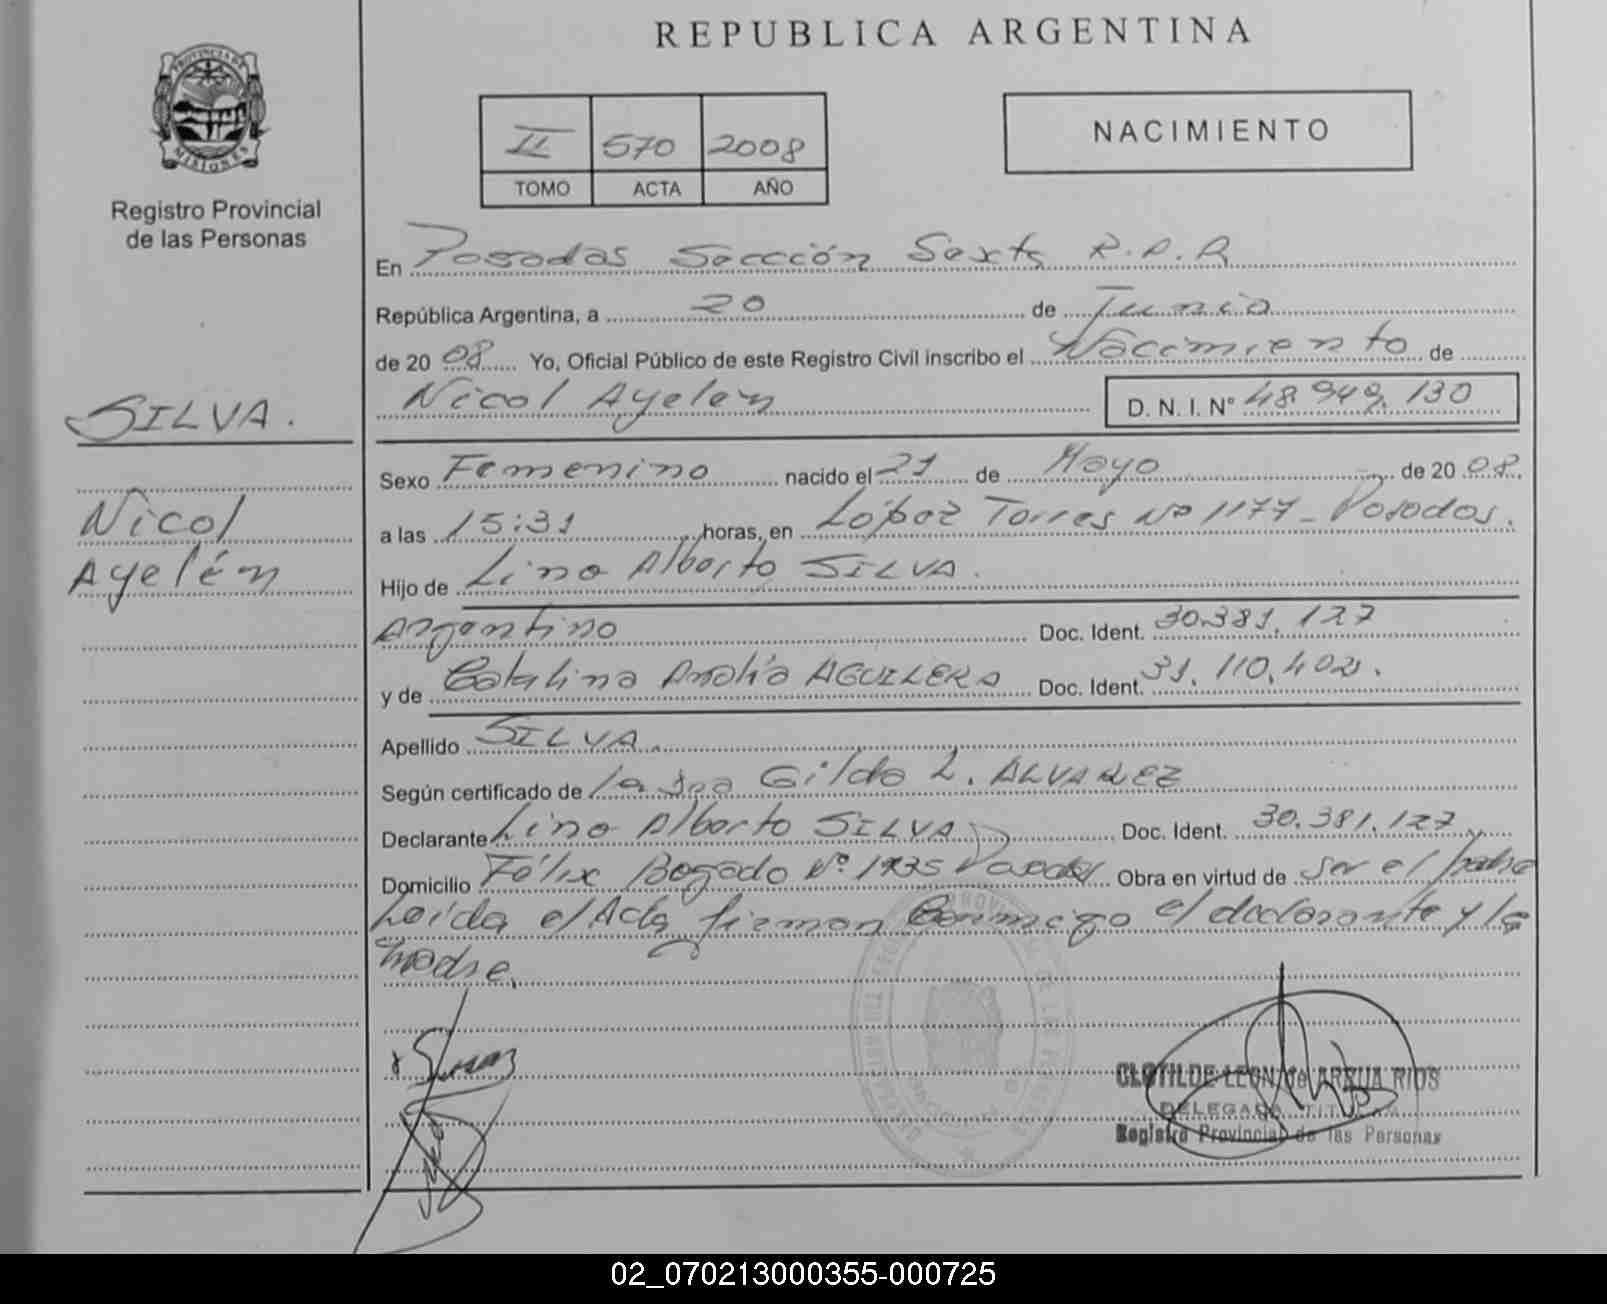 REPUBLICA ARGENTINA
PROVINCIA DE
MISIONES
Registro Provincial
de las Personas
II 570 2008
TOMO ACTA AÑO
NACIMIENTO
En Posadas Sección Sexta R.P.P.
República Argentina, a 20 de Junio
de 2008 Yo, Oficial Público de este Registro Civil inscribo el Nacimiento de
Nicol Ayelen D. N. I. N° 48.949.130
SILVA.
Nicol
Ayelén
Sexo Femenino nacido el 21 de Mayo de 2008.
a las 15:31 horas, en López Torres Nº 1177 - Posadas.
Hijo de Lino Alberto SILVA.
Argentino Doc. Ident. 30.381.127
y de Catalina Analia AGUILERA Doc. Ident. 31.110.402.
Apellido SILVA.
Según certificado de la Dra Gilda L. ALVAREZ
Declarante Lino Alberto SILVA Doc. Ident. 30.381.127
Domicilio Félix Bogado Nº 1935 Posadas Obra en virtud de ser el padre
Leida el Acta firman Conmigo el declarante y la
madre.
CLOTILDE LEON de ARRUA RIOS
DELEGADA TITULAR
Registro Provincial de las Personas
02_070213000355-000725